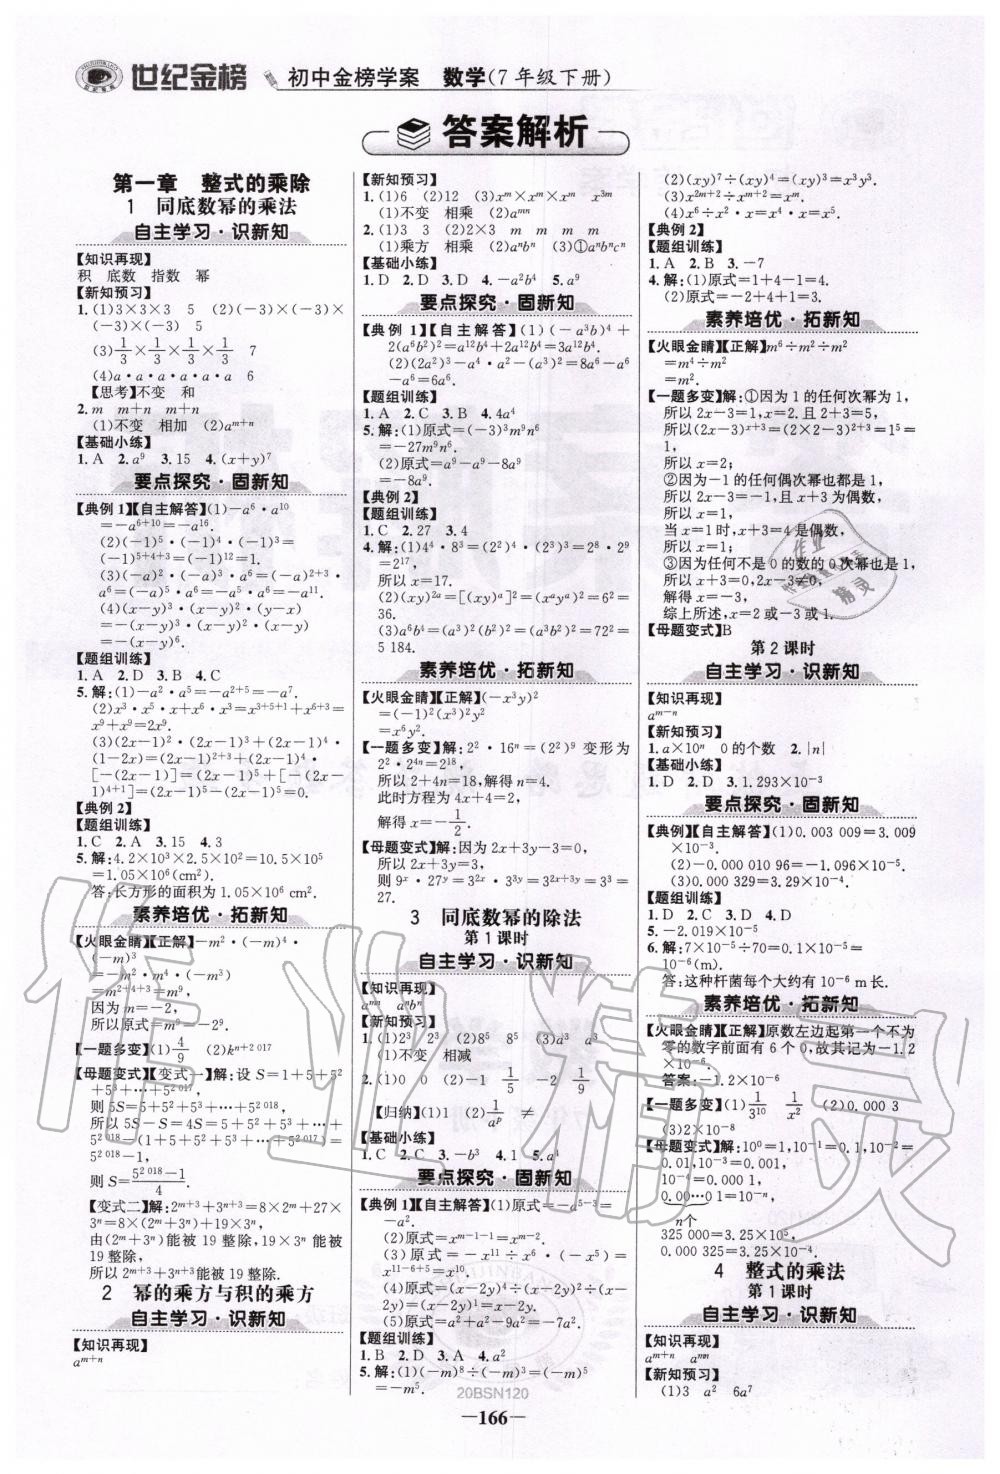 世纪金榜 初中金榜学案 数学(7年级下册)
答案解析
第一章 整式的乘除
1 同底数幂的乘法
自主学习·识新知
【知识再现】
积 底数 指数 幂
【新知预习】
1.(1)3×3×3 5 (2)(-3)×(-3)×
(-3)×(-3)×(-3) 5
(3)1/3×1/3×1/3×1/3 7
(4)a·a·a·a·a·a 6
【思考】不变 和
2.m m+n m+n
(1)不变 相加 (2)a^{m+n}
【基础小练】
1.A 2.a⁹ 3.15 4.(x+y)⁷
要点探究·固新知
【典例1】【自主解答】(1)-a⁶·a¹⁰
=-a⁶⁺¹⁰=-a¹⁶.
(2)(-1)⁵·(-1)⁴·(-1)³=
(-1)⁵⁺⁴⁺³=1.
(3)(-a)²·(-a)³=(-a)²⁺³·
a⁶=(-a)⁵·a⁶=-a⁵·a⁶=-a¹¹.
(4)(x-y)³·(x-y)²·(y-x)
=-(x-y)³·(x-y)²·(x-y)
=-(x-y)⁶.
【题组训练】
1.A 2.D 3.B 4.C
5.解:(1)-a²·a⁵=-a²⁺⁵=-a⁷.
(2)x³·x⁵·x+x⁶·x³=x³⁺⁵⁺¹+x⁶⁺³=
x⁹+x⁹=2x⁹.
(3)(2x-1)²·(2x-1)³+(2x-1)⁴·
(1-2x)=(2x-1)²⁺³+(2x-1)⁴·
[-(2x-1)]=(2x-1)⁵+[-(2x-
1)⁴⁺¹]=(2x-1)⁵-(2x-1)⁵=0.
【典例2】
【题组训练】
1.C 2.A 3.15 4.3
5.解:4.2×10³×2.5×10²=10.5×10⁵
=1.05×10⁶(cm²).
答:长方形的面积为1.05×10⁶ cm².
素养培优·拓新知
【火眼金睛】【正解】-m²·(-m)⁴·
(-m)³
=-m²·m⁴·(-m³)
=m²⁺⁴⁺³=m⁹,
因为m=-2,
所以原式=m⁹=-2⁹.
【一题多变】(1)4/9 (2)k^{n+2 017}
【母题变式】【变式一】解:设S=1+5+5²
+5³+…+5^{2 017},
则5S=5+5²+5³+…+5^{2 018},
所以5S-S=4S=5+5²+5³+…+
5^{2 018}-(1+5+5²+5³+…+5^{2 017})=
5^{2 018}-1,
则S=(5^{2 018}-1)/4.
【变式二】解:2^{m+3}+3^{n+3}=8×2^m+27×
3^n=8×(2^m+3^n)+19×3^n,
由(2^m+3^n)能被19整除,19×3^n能被
19整除,
所以2^{m+3}+3^{n+3}能被19整除.
2 幂的乘方与积的乘方
自主学习·识新知
【知识再现】
a^{m+n}
【新知预习】
1.(1)6 (2)12 (3)x^m×x^m×x^m x^{3m}
(1)不变 相乘 (2)a^{mn}
2.(1)3 3 (2)2×3 m m m m
(1)乘方 相乘 (2)a^nb^n (3)①a^nb^nc^n
【基础小练】
1.D 2.D 3.D 4.-a²b⁴ 5.a⁹
要点探究·固新知
【典例1】【自主解答】(1)(-a³b)⁴+
2(a⁶b²)²=a¹²b⁴+2a¹²b⁴=3a¹²b⁴.
(2)(2a²)³-a⁴·a²-(a³)²=8a⁶-a⁶
-a⁶=6a⁶.
【题组训练】
1.A 2.C 3.B 4.4a⁴
5.解:(1)原式=(-3)³m⁹n⁶
=-27m⁹n⁶.
(2)原式=a⁹-a⁹-8a⁹
=-8a⁹.
【典例2】
【题组训练】
1.C 2.27 3.4
4.解:(1)4⁴·8³=(2²)⁴·(2³)³=2⁸·2⁹
=2¹⁷,
所以x=17.
(2)(xy)^{2a}=[(xy)^a]²=(x^ay^a)²=6²=
36.
(3)a⁶b⁴=(a³)²(b²)²=(a³b²)²=72²=
5 184.
素养培优·拓新知
【火眼金睛】【正解】(-x³y)²
=(-1)²(x³)²y²
=x⁶y².
【一题多变】解:2²·16^n=(2²)⁹变形为
2²·2^{4n}=2¹⁸,
所以2+4n=18,解得n=4.
此时方程为4x+4=2,
解得x=-1/2.
【母题变式】解:因为2x+3y-3=0,
所以2x+3y=3,
则9^x·27^y=3^{2x}·3^{3y}=3^{2x+3y}=3³=
27.
3 同底数幂的除法
第1课时
自主学习·识新知
【知识再现】
a^{mn} a^nb^n
【新知预习】
1.(1)2³ 2³ (2)8⁵ 8⁵ (3)a³ a³
(1)不变 相减
2.(1)0 0 (2)-1 1/5 -2 1/9
【归纳】(1)1 (2)1/a^p ≠ ≠
【基础小练】
1.C 2.C 3.-b³ 4.1 5.a⁴
要点探究·固新知
【典例1】【自主解答】(1)原式=-a⁵⁻³=
-a².
(2)原式=x^{m-1-1}=x^{m-2}.
(3)原式=-x¹¹÷x⁶·(-x⁵)=
x¹¹⁻⁶⁺⁵=x¹⁰.
(4)原式=(x-2y)⁴÷(x-2y)²÷(x-
2y)=(x-2y)⁴⁻²⁻¹=x-2y.
(5)原式=a²+a²-9a²=-7a².
【题组训练】
1.B 2.D 3.A 4.a²
5.解:(1)(-m)⁸÷(-m)³=(-m)⁵=
-m⁵.
(2)(xy)⁷÷(xy)⁴=(xy)³=x³y³.
(3)x^{2m+2}÷x^{m+2}=x^m.
(4)x⁶÷x²·x=x⁴·x=x⁵.
【典例2】
【题组训练】
1.A 2.B 3.-7
4.解:(1)原式=1+4-1=4.
(2)原式=-2+4+1=3.
素养培优·拓新知
【火眼金睛】【正解】m⁶÷m²÷m²
=m⁴÷m²
=m².
【一题多变】解:①因为1的任何次幂为1,
所以2x-3=1,x=2.且2+3=5,
所以(2x-3)^{x+3}=(2×2-3)²⁺³=1⁵=
1,
所以x=2;
②因为-1的任何偶次幂也都是1,
所以2x-3=-1,且x+3为偶数,
所以x=1;
当x=1时,x+3=4是偶数,
所以x=1;
③因为任何不是0的数的0次幂也是1,
所以x+3=0,2x-3≠0,
解得x=-3,
综上所述,x=2或-3或1.
【母题变式】B
第2课时
自主学习·识新知
【知识再现】
a^{m-n}
【新知预习】
1.a×10^n 0的个数 2.|n|
【基础小练】
1.D 2.D 3.1.293×10⁻³
要点探究·固新知
【典例】【自主解答】(1)0.003 009=3.009
×10⁻³.
(2)-0.000 010 96=-1.096×10⁻⁵.
(3)0.000 329=3.29×10⁻⁴.
【题组训练】
1.D 2.C 3.D 4.D
5.-2.019×10⁻⁵
6.解:7×10⁻⁵÷70=0.1×10⁻⁵=
10⁻⁶(m).
答:这种杆菌每个大约有10⁻⁶ m长.
素养培优·拓新知
【火眼金睛】【正解】原数左边起第一个不为
零的数字前面有6个0,故其记为-1.2
×10⁻⁶.
答案:-1.2×10⁻⁶
【一题多变】(1)1/3¹⁰ 1/x² (2)0.000 3
(3)2×10⁻⁸
【母题变式】解:10⁰=1,10⁻¹=0.1,10⁻²=
0.01,10⁻³=0.001,
10⁻⁴=0.000 1,
0.00…01=10⁻ⁿ,
n个
325 000=3.25×10⁵,
0.000 325=3.25×10⁻⁴.
4 整式的乘法
第1课时
自主学习·识新知
【知识再现】
a^{m+n} a^{mn}
【新知预习】
(1)3 a² 6a⁷
20BSN120
—166—
作业精灵